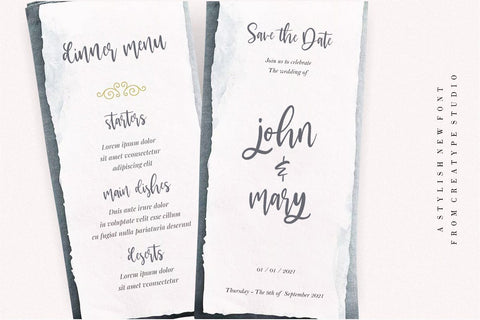 dinner menu
starters
Lorem ipsum dolor
sit amet vconsectetur
adipiscing elit
main dishes
Duis aute irure dolor
in voluptate velit esse cillum
eu fugiat nulla pariatura deserunt
deserts
Lorem ipsum dolor
sit amet vconsectetur
Save the Date
Join us to celebrate
The wedding of
john
&
mary
01 / 01 / 2021
Thursday - The 9th of September 2021
A STYLISH NEW FONT
FROM CREATYPE STUDIO